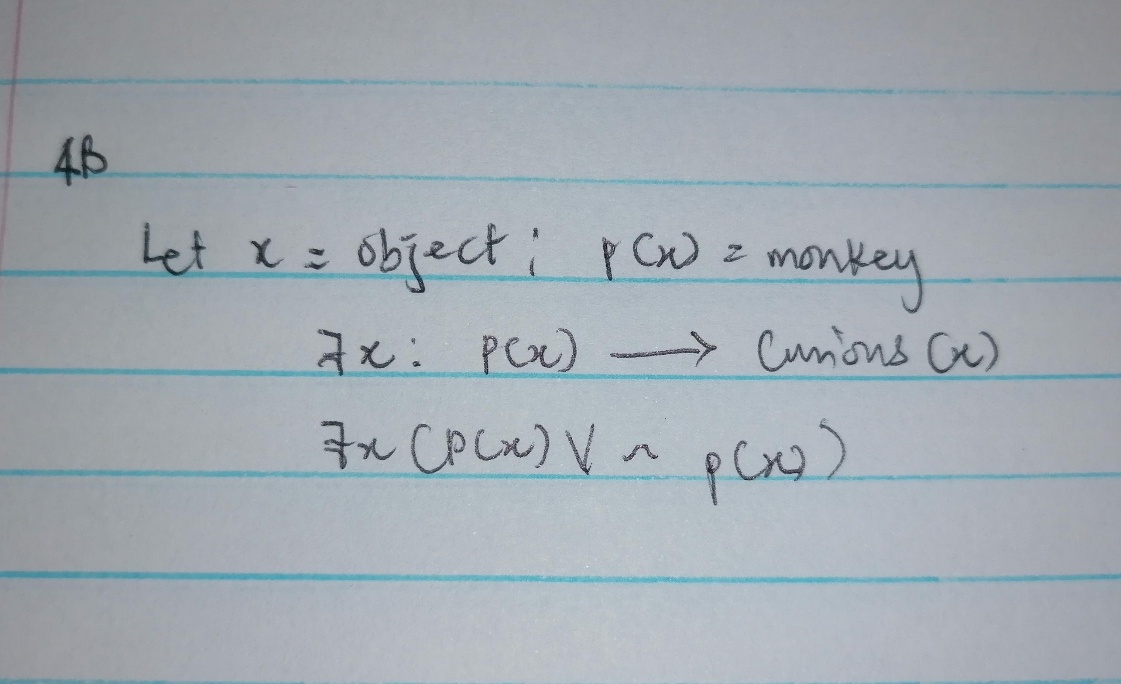 4B
Let x = object; p(x) = monkey
∃x: p(x) → Curious(x)
∃x (p(x) V ~ p(x))